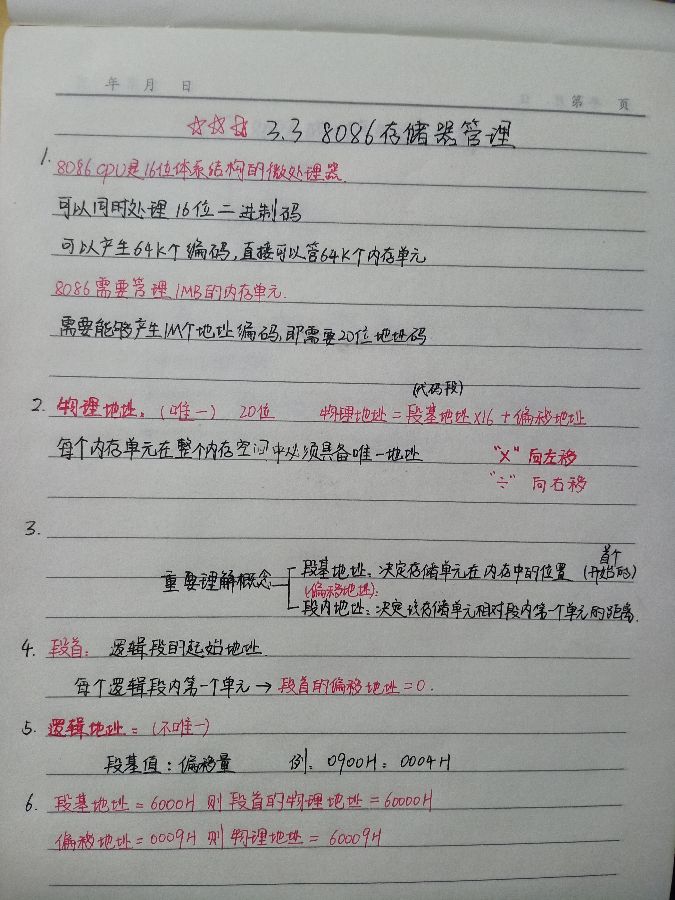 年 月 日
第 页
☆☆☆ 3.3 8086存储器管理
1. 8086 CPU是16位体系结构的微处理器.
可以同时处理16位二进制码
可以产生64K个编码,直接可以管64K个内存单元
8086需要管理1MB的内存单元.
需要能够产生1M个地址编码,即需要20位地址码
(代码段)
2. 物理地址:(唯一) 20位 物理地址=段基地址×16+偏移地址
每个内存单元在整个内存空间中必须具备唯一地址 "×"向左移
"÷"向右移
3.
首个
重要理解概念 段基地址:决定存储单元在内存中的位置 (开始的)
(偏移地址):
段内地址:决定该存储单元相对段内第一个单元的距离.
4. 段首: 逻辑段的起始地址.
每个逻辑段内第一个单元→段首的偏移地址=0.
5. 逻辑地址:(不唯一)
段基值:偏移量 例:0900H:0004H
6. 段基地址=6000H 则段首的物理地址=60000H
偏移地址=0009H 则物理地址=60009H